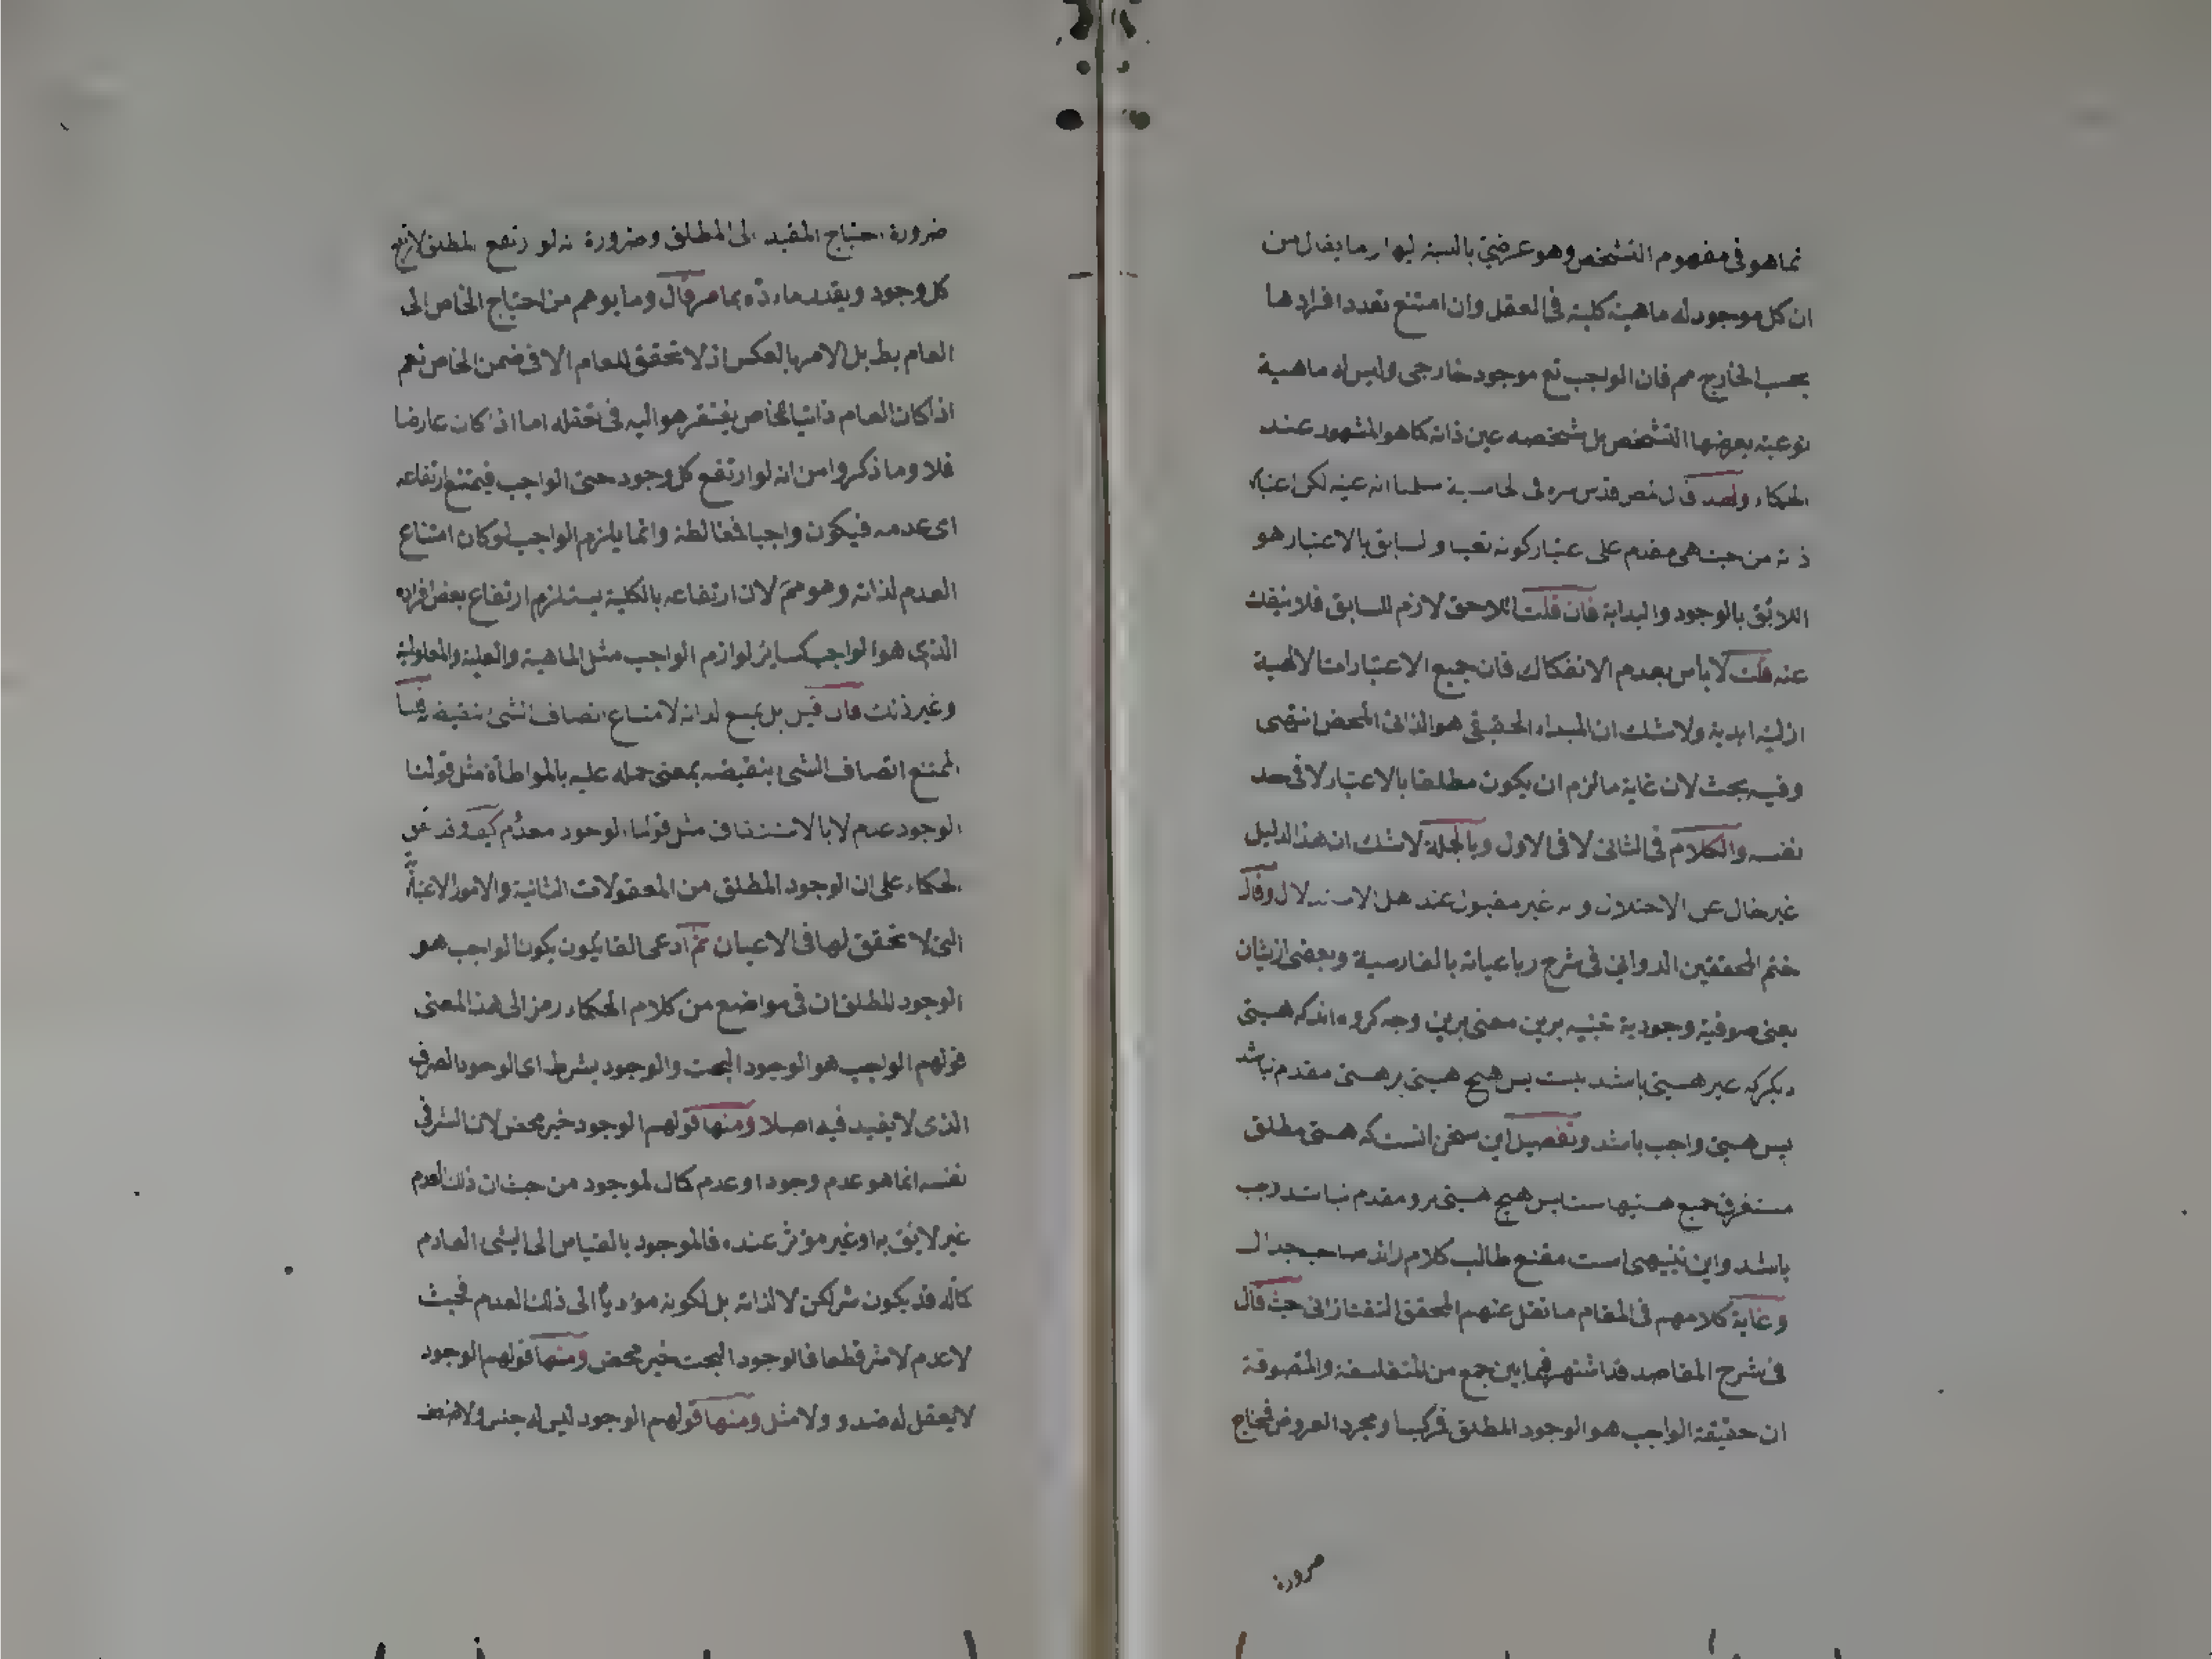 انما هو في مفهوم التشخص وهو عرضي بالنسبة اليها وما يقال من
ان كل موجود له ماهية كلية في العقل وان امتنع تعدد افرادها
بحسب الخارج مم فان الواجب تع موجود خارجي وليس له ماهية
نوعية يعرضها التشخص بل تشخصه عين ذاته كما هو المشهور عند
الحكماء ولقد قال قدس سره في الحاشية سلمنا انه عينه لكن اعتبار
ذاته من حيث هي مقدم على اعتبار كونه تعينا والسابق بالاعتبار هو
اللائق بالوجود والبداية فان قلت اللاحق لازم للسابق فلا ينفك
عنه قلت لا باس بعدم الانفكاك فان جميع الاعتبارات الالهية
ازلية ابدية ولا شك ان المبداء الحقيقي هو الذات المحض انتهى
وفيه بحث لان غاية ما لزم ان يكون مطلقا بالاعتبار لا في حد
نفسه والكلام في الثاني لا في الاول وبالجملة لا شك ان هذا الدليل
غير خال عن الاختلال و غير مقبول عند اهل الاستدلال وقال
ختم المحققين الدواني في شرح رباعياته بالفارسية وبعضى ازيشان
يعنى صوفية وجودية تنبيه برين معنى برين وجه كرده اند كه هستى
ديكر كه غير هستى باشد نيست پس هيچ هستى بر هستى مقدم نباشد
پس هستى واجب باشد وتفصيل اين سخن انست كه هستى مطلق
مستغرق جميع هستيهاست پس هيچ هستى برو مقدم نباشد واجب
باشد واين تنبيهى است مقنع طالب كلام را نه صاحب جدال
وغاية كلامهم في المقام ما نقل عنهم المحقق التفتازاني حيث قال
في شرح المقاصد قد اشتهر فيما بين جمع من المتفلسفة والمتصوفة
ان حقيقة الواجب هو الوجود المطلق ومجرد العروض فمحتاج
ضرورة
ضرورة احتياج المقيد الى المطلق وضرورة انه لو ارتفع المطلق لارتفع
كل وجود ويقتدماء ذه بما مر قال وما يوهم من احتياج الخاص الى
العام بط بل الامر بالعكس اذ لا تحقق للعام الا في ضمن الخاص نعم
اذا كان العام ذاتيا للخاص يفتقر هو اليه في تعقله اما اذا كان عارضا
فلا وما ذكروا من انه لو ارتفع كل وجود حتى الواجب فيمتنع ارتفاعه
اى عدمه فيكون واجبا فغالطة وانما يلزم الواجب لو كان امتناع
العدم لذاته وهو مم لان ارتفاعه بالكلية يستلزم ارتفاع بعض افراده
الذى هو الواجب كسائر لوازم الواجب مثل الماهية والعلية والمعلولية
وغير ذلك فان قيل بل يمتنع لذاته لامتناع اتصاف الشئ بنقيضه قلنا
الممتنع اتصاف الشئ بنقيضه بمعنى حمله عليه بالمواطأة مثل قولنا
الوجود عدم لا بالاشتقاق مثل قولنا الوجود معدوم كيف وقد اتفق
الحكماء على ان الوجود المطلق من المعقولات الثانية والامور الاعتبارية
التي لا تحقق لها في الاعيان ثم ادعى القايلون بكون الواجب هو
الوجود المطلق ان في مواضع من كلام الحكماء رمز الى هذا المعنى
قولهم الواجب هو الوجود البحت والوجود بشرط اى الوجود الصرف
الذى لا يقيد فيه اصلا ومنها قولهم الوجود خير محض لان الشر في
نفسه انما هو عدم وجود او عدم كمال لموجود من حيث ان ذلك العدم
غير لائق به او غير مؤثر عنده فالموجود بالقياس الى الشئ العادم
كماله قد يكون شر لكن لا لذاته بل لكونه مؤديا الى ذلك العدم فحيث
لا عدم لا شر قطعا فالوجود البحت خير محض ومنها قولهم الوجود
لا يعقل له ضد و ولا مثل ومنها قولهم الوجود ليس له جنس ولا فصل